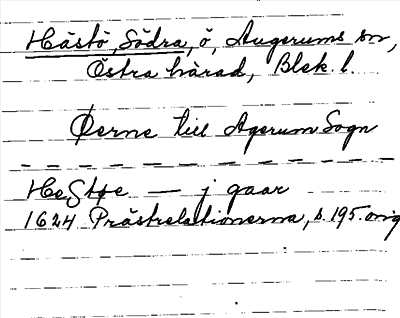 Hästö, Södra, ö, Augerums sn,
Östra härad, Blek. l.
Øerne till Agerum Sogn
HeStøe — j gaar
1624 Prästrelationerna, s. 195. orig